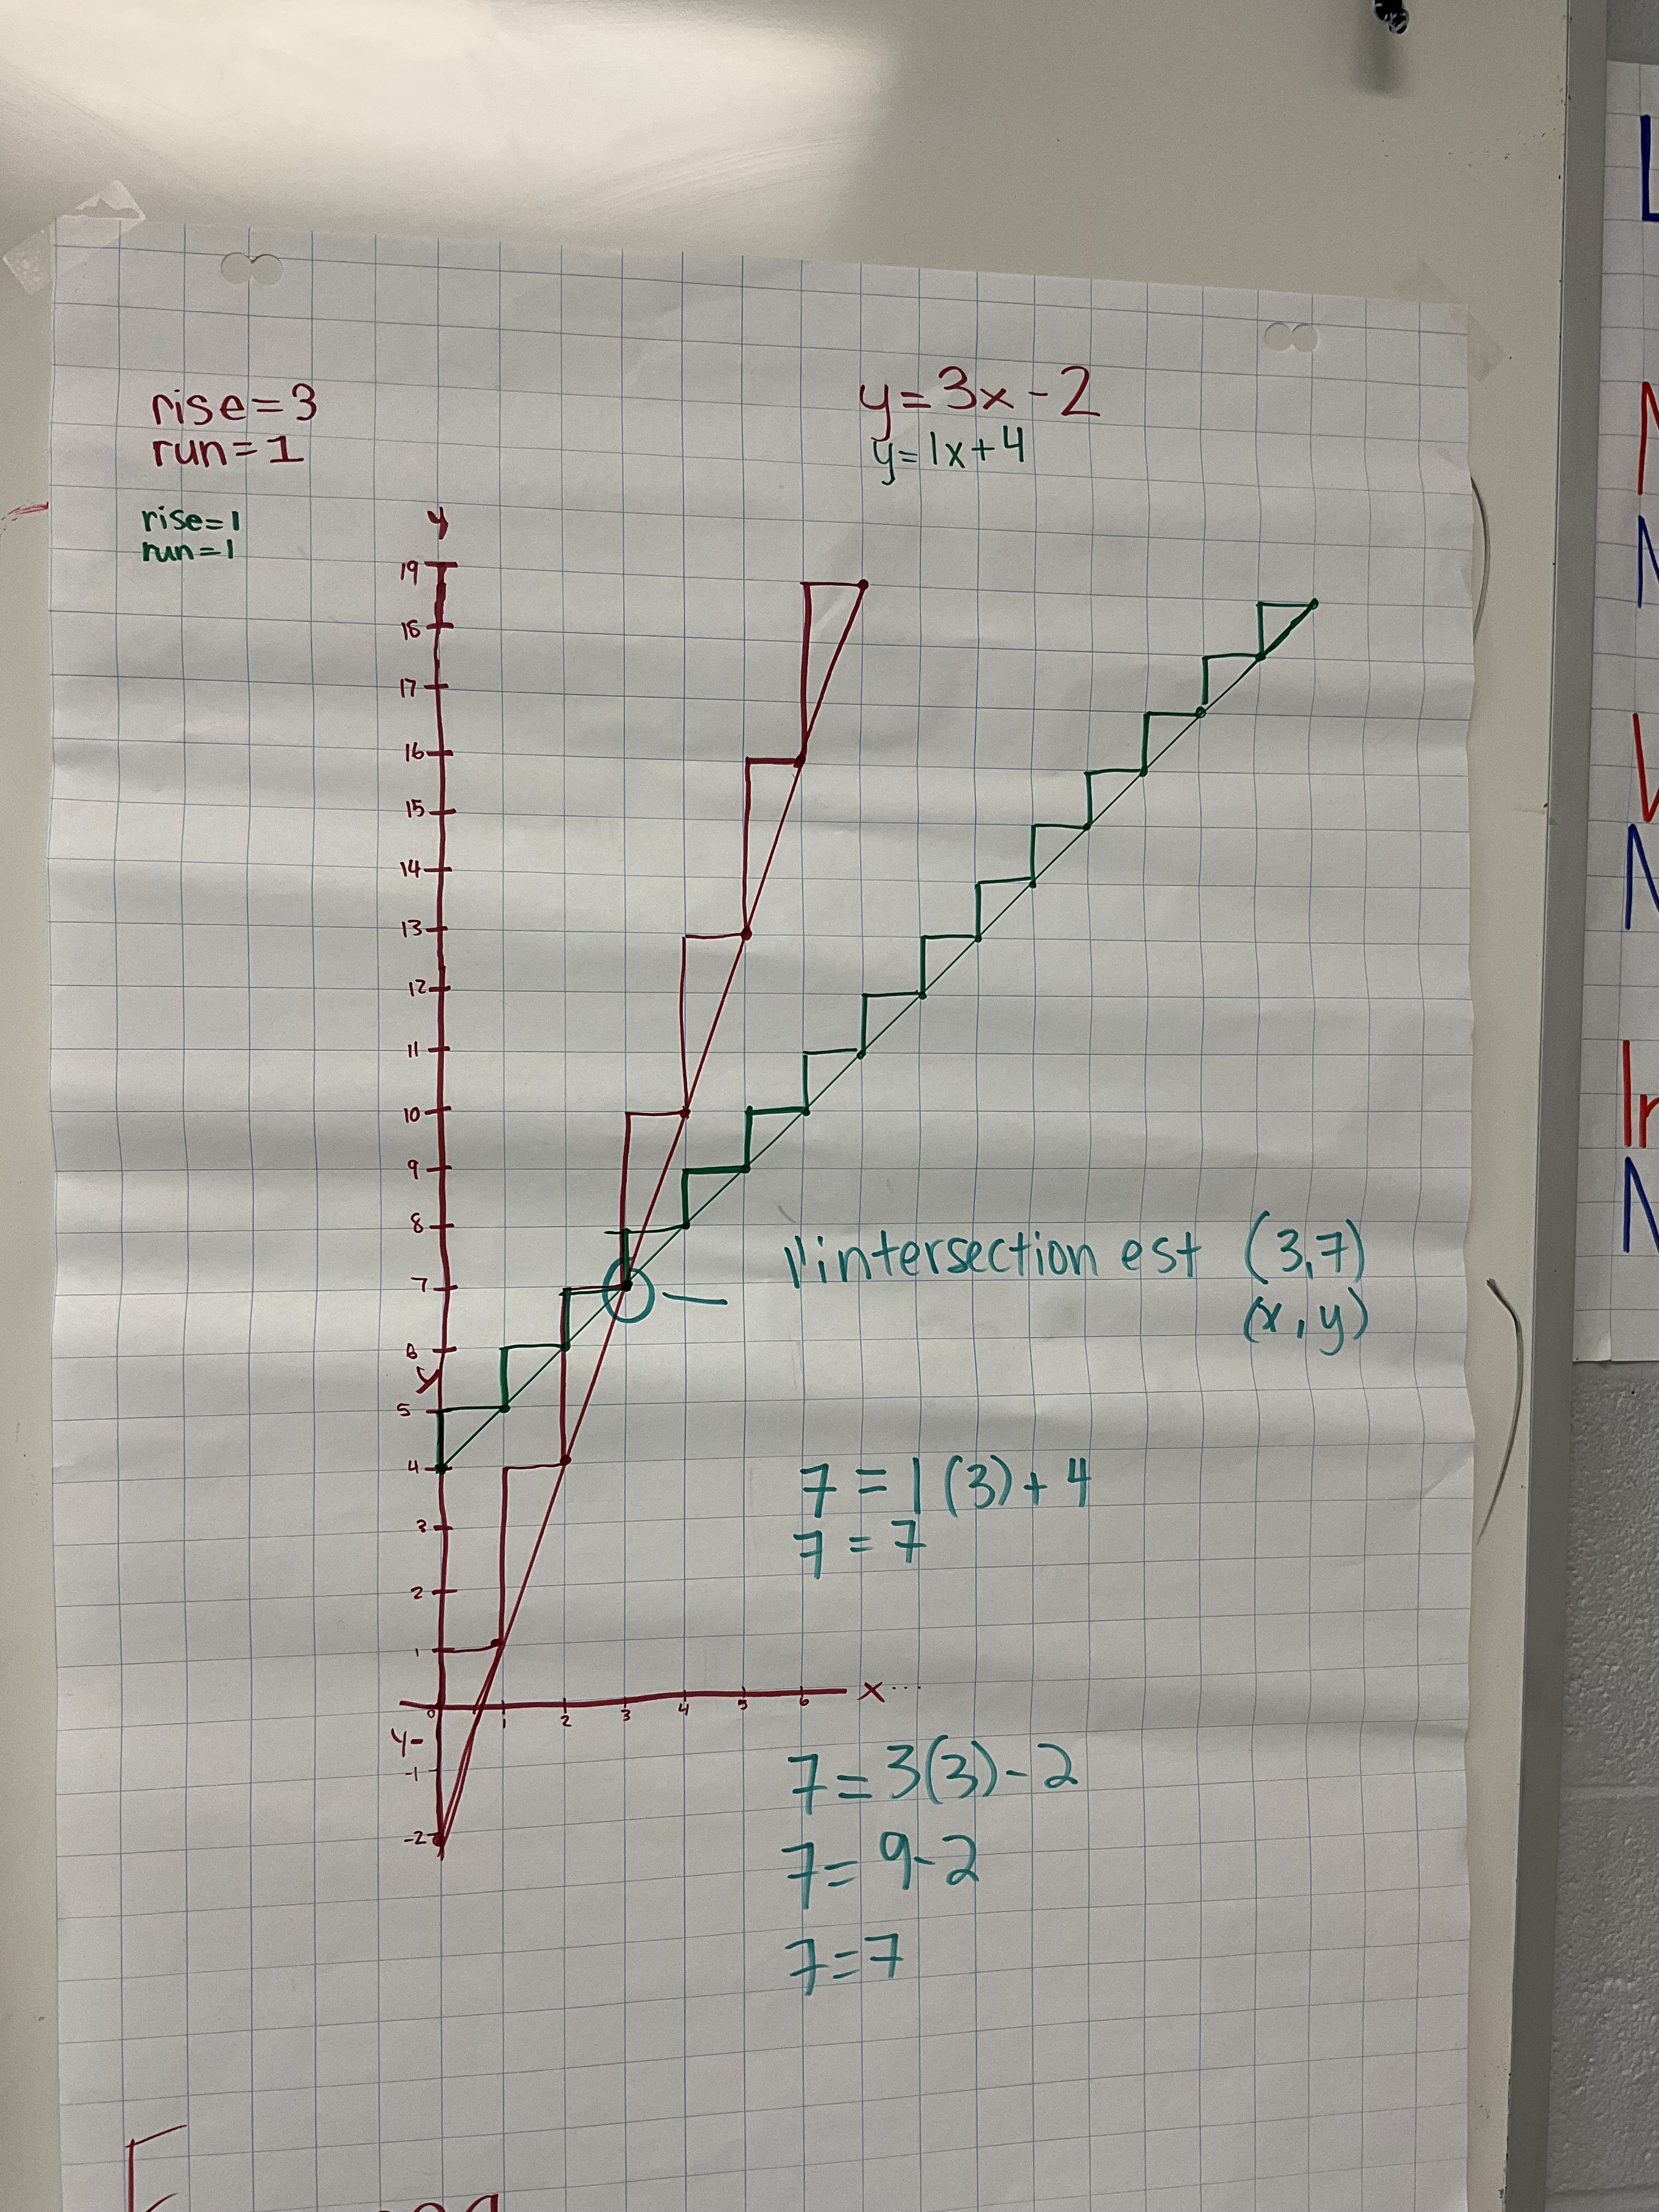 rise=3
run=1
y=3x-2
y=1x+4
rise=1
run=1
y
19
18
17
16
15
14
13
12
11
10
9
8
7
6
y
5
4
3
2
1
0 1 2 3 4 5 6 x...
y-
-1
-2
l'intersection est (3,7)
(x,y)
7=1(3)+4
7=7
7=3(3)-2
7=9-2
7=7
L
N
N
N
In
N